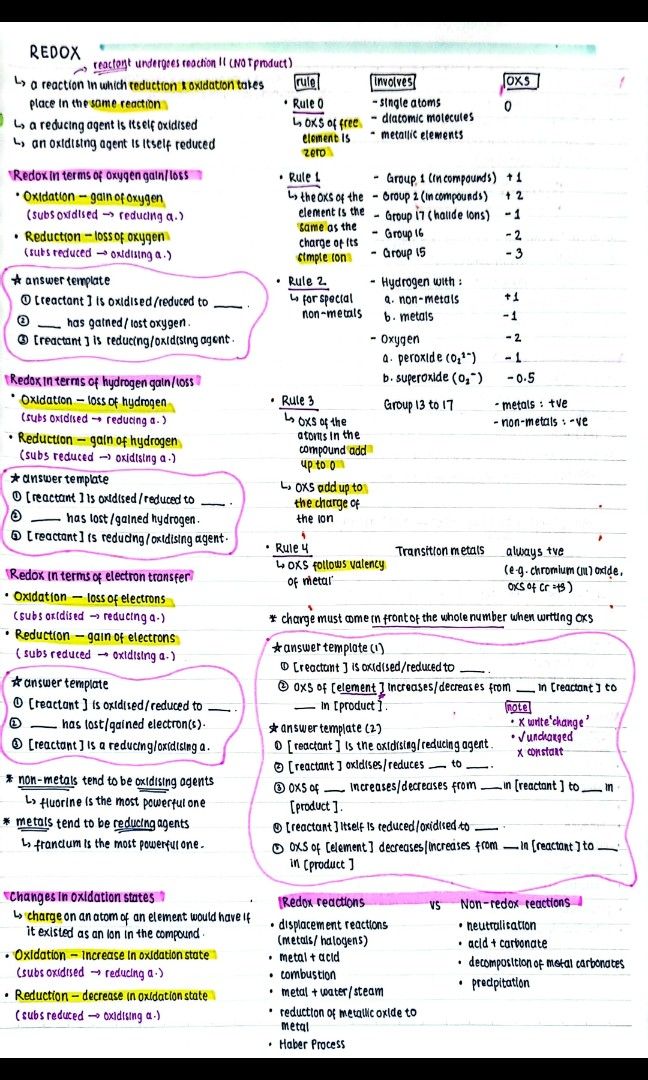 REDOX
reactant undergoes reaction !! (NOT product)
↳ a reaction in which reduction & oxidation takes
place in the same reaction
↳ a reducing agent is itself oxidised
↳ an oxidising agent is itself reduced
Redox in terms of oxygen gain/loss
• Oxidation – gain of oxygen
(subs oxidised → reducing a.)
• Reduction – loss of oxygen
(subs reduced → oxidising a.)
★ answer template
① [reactant] is oxidised/reduced to ____.
② ____ has gained/lost oxygen.
③ [reactant] is reducing/oxidising agent.
Redox in terms of hydrogen gain/loss
• Oxidation – loss of hydrogen
(subs oxidised → reducing a.)
• Reduction – gain of hydrogen
(subs reduced → oxidising a.)
★ answer template
① [reactant] is oxidised/reduced to ____.
② ____ has lost/gained hydrogen.
③ [reactant] is reducing/oxidising agent.
Redox in terms of electron transfer
• Oxidation – loss of electrons
(subs oxidised → reducing a.)
• Reduction – gain of electrons
(subs reduced → oxidising a.)
★ answer template
① [reactant] is oxidised/reduced to ____.
② ____ has lost/gained electron(s).
③ [reactant] is a reducing/oxidising a.
* non-metals tend to be oxidising agents
↳ fluorine is the most powerful one
* metals tend to be reducing agents
↳ francium is the most powerful one.
Changes in oxidation states
↳ charge on an atom of an element would have if
it existed as an ion in the compound.
• Oxidation – increase in oxidation state
(subs oxidised → reducing a.)
• Reduction – decrease in oxidation state
(subs reduced → oxidising a.)
rule involves OXS
• Rule 0 - single atoms 0
↳ OXS of free - diatomic molecules
element is - metallic elements
zero
• Rule 1 - Group 1 (in compounds) +1
↳ the OXS of the - Group 2 (in compounds) +2
element is the - Group 17 (halide ions) -1
same as the - Group 16 -2
charge of its - Group 15 -3
simple ion
• Rule 2 - Hydrogen with:
↳ for special a. non-metals +1
non-metals b. metals -1
- Oxygen -2
a. peroxide (O₂²⁻) -1
b. superoxide (O₂⁻) -0.5
• Rule 3 Group 13 to 17 - metals : +ve
↳ OXS of the - non-metals : -ve
atoms in the
compound add
up to 0
↳ OXS add up to
the charge of
the ion
• Rule 4 Transition metals always +ve
↳ OXS follows valency (e.g. chromium (III) oxide,
of metal OXS of Cr = +3)
* charge must come in front of the whole number when writing OXS
★ answer template (1)
① [reactant] is oxidised/reduced to ____.
② OXS of [element] increases/decreases from ___ in [reactant] to
___ in [product].
note
• x write 'change'
• √ unchanged
x constant
★ answer template (2)
① [reactant] is the oxidising/reducing agent.
② [reactant] oxidises/reduces ___ to ___.
③ OXS of ___ increases/decreases from ___ in [reactant] to ___ in
[product].
④ [reactant] itself is reduced/oxidised to ___.
⑤ OXS of [element] decreases/increases from ___ in [reactant] to ___
in [product]
Redox reactions vs Non-redox reactions
• displacement reactions • neutralisation
(metals/ halogens) • acid + carbonate
• metal + acid • decomposition of metal carbonates
• combustion • precipitation
• metal + water/steam
• reduction of metallic oxide to
metal
• Haber Process